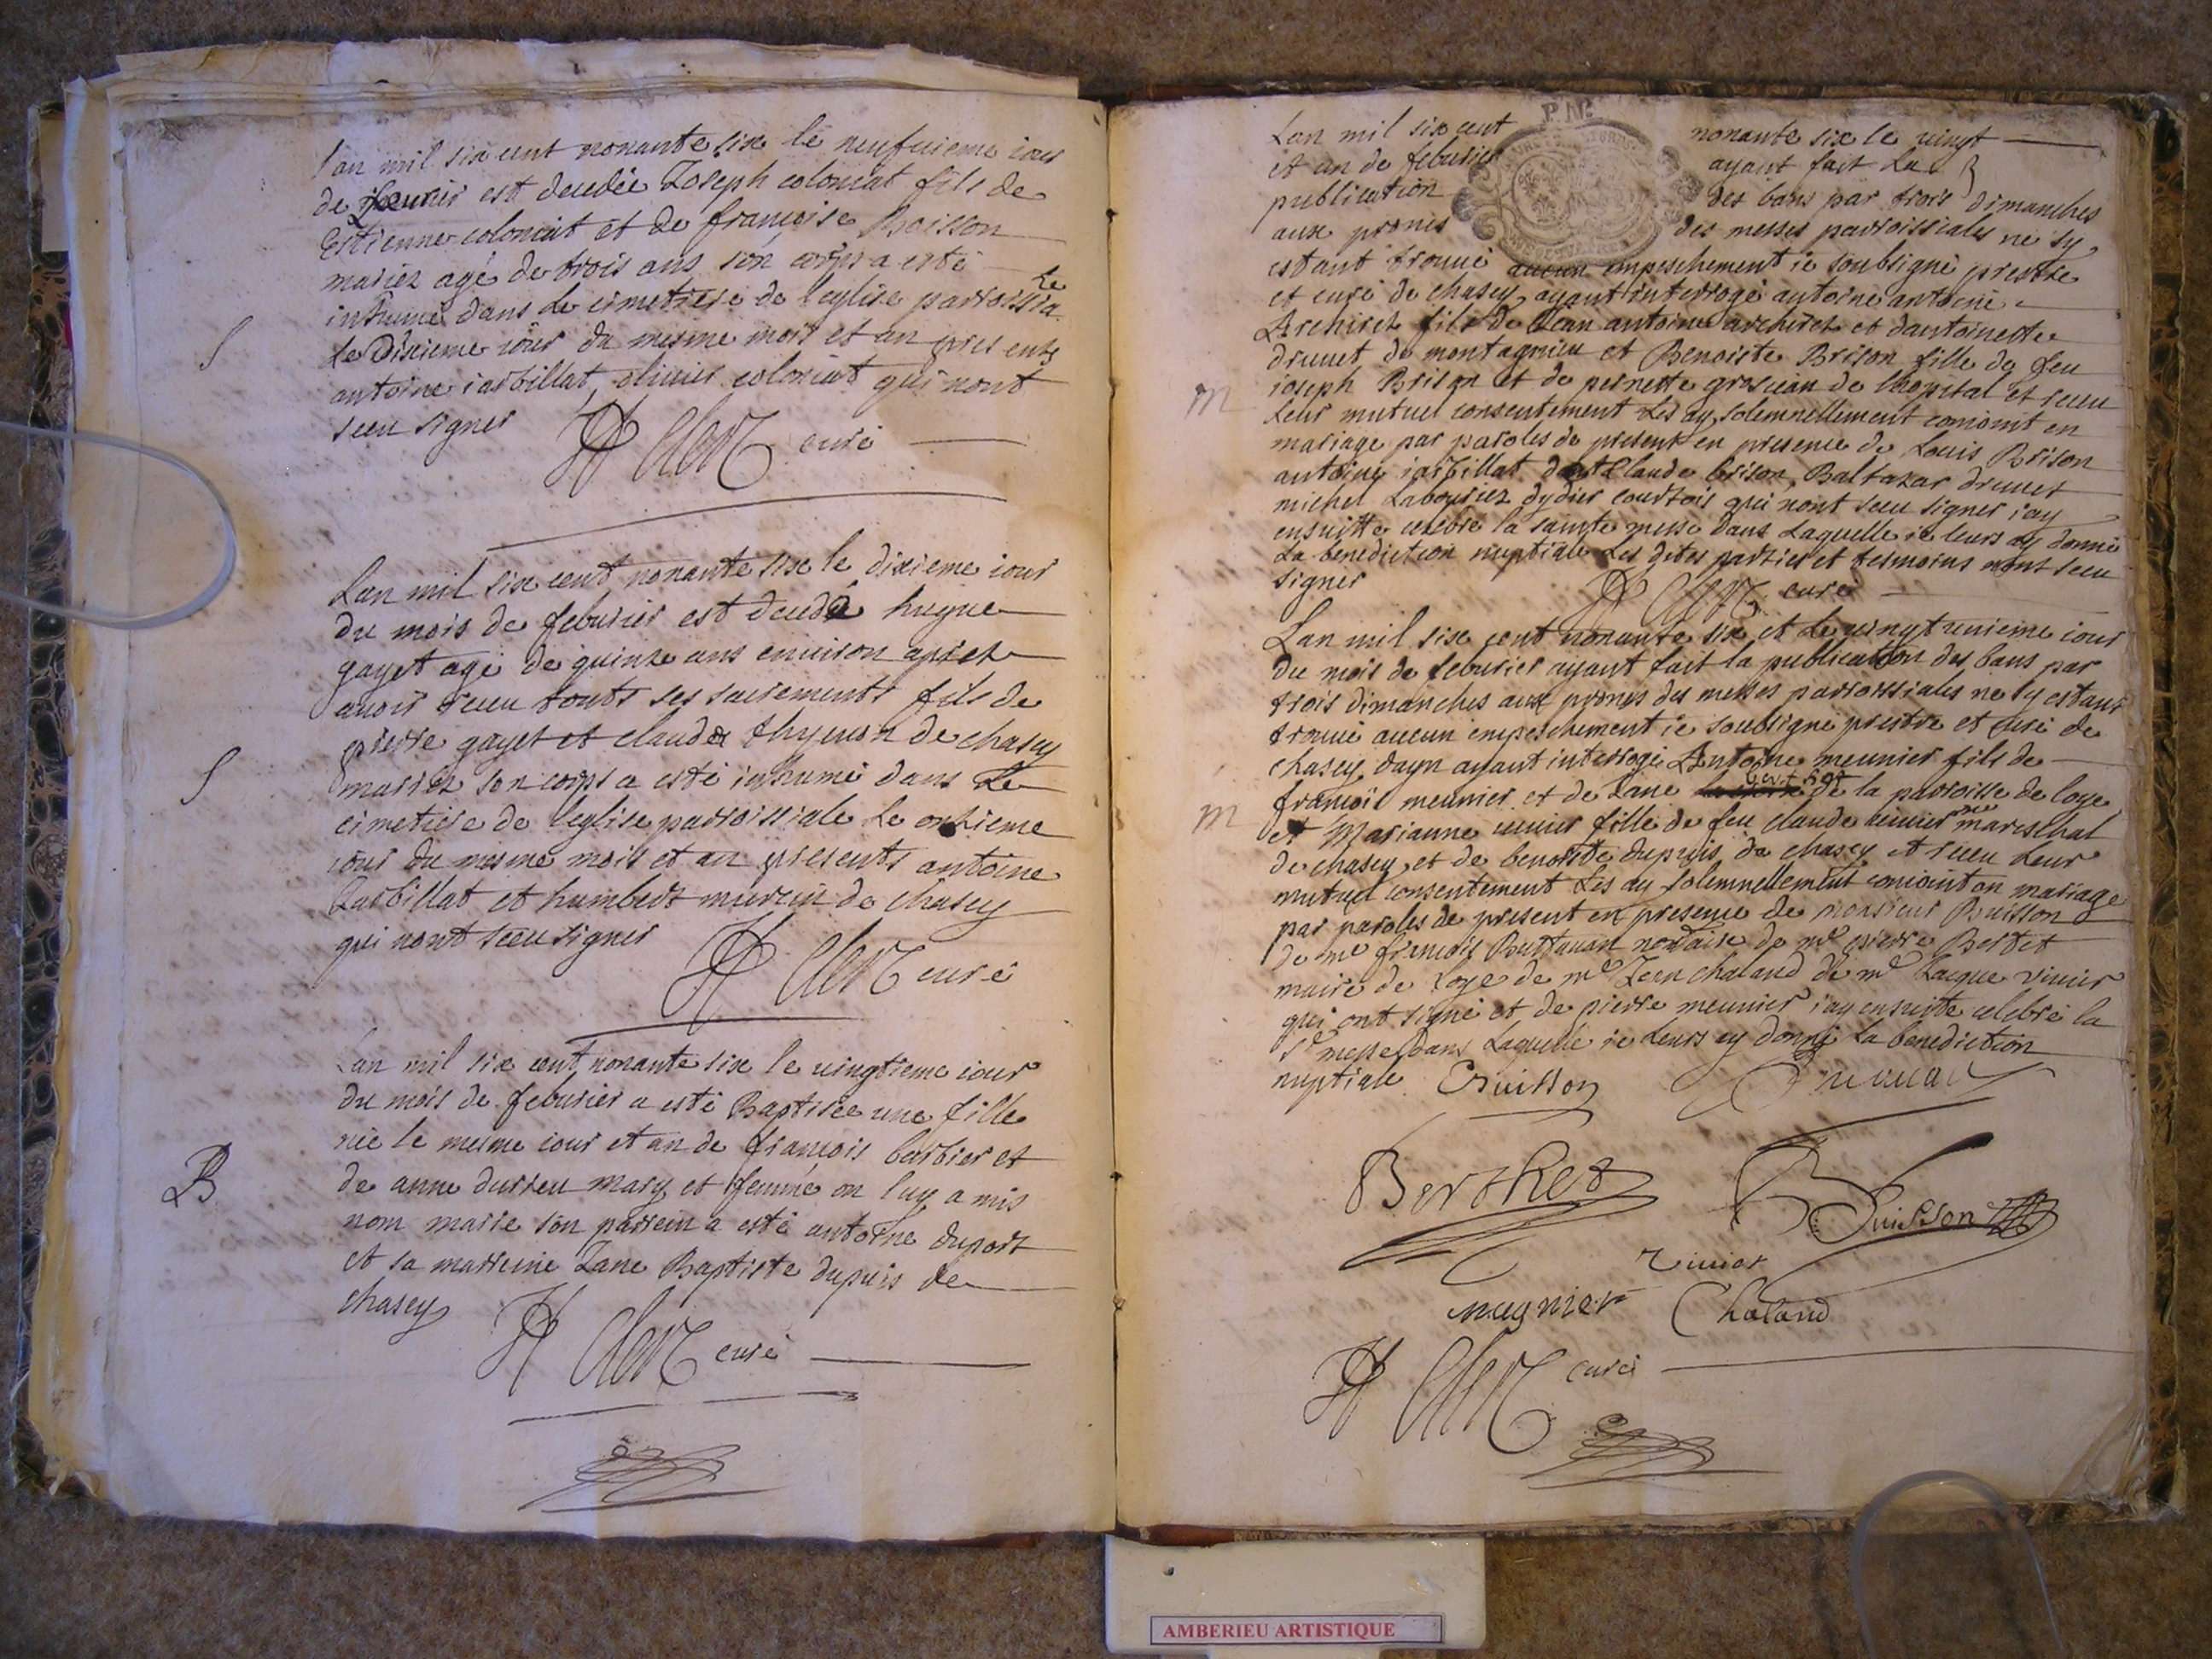 l'an mil six cent nonante six le neufuieme iour
de feburier est decedée Joseph coloniat fils de
Estienne coloniat et de françoise Boisson
mariez agé de trois ans son corps a esté
inhumé dans le cimetiere de l'eglise parroissiale
le dixieme iour du mesme mois et an presents
antoine iarbillat, oliuier coloniat qui nont
sceu signer
Clerc curé
S
Lan mil six cent nonante six le dixieme iour
du mois de feburier est decedé hugue
gayet agé de quinze ans enuiron apres
auoir receu touts ses sacrements fils de
pierre gayet et clauda de chasey
mariez son corps a esté inhumé dans Le
cimetiere de l'eglise parroissiale Le onzieme
iour du mesme mois et an presents antoine
Jarbillat et humbert de chasey
qui nont sceu signer
Clerc curé
S
Lan mil six cent nonante six le uingtieme iour
du mois de feburier a esté Baptisée une fille
née le mesme iour et an de françois barbier et
de anne mary et femme on luy a mis
nom marie son parrein a esté antoine duport
et sa marreine Jane Baptiste dupuis de
chasey
Clerc curé
B
P. M.
Lan mil six cent nonante six le uingt
et un de feburier ayant fait La
publication des bans par trois dimanches
aux prones des messes parroissiales ne sy
estant trouué aucun empeschement ie soubsigné prestre
et curé de chasey ayant interrogé antoine antoine
Archirel fils de Jean antoine archirel et dantoinette
druuet de montagnieu et Benoiste Brison fille de feu
ioseph Brison et de pernette grosjean de lhopital et receu
Leur mutuel consentement Les ay solemnellement conioint en
mariage par paroles de present en presence de Louis Brison
antoine iarbillat Claude brison, Baltazar druuet
michel Labouriez dydier courtois qui nont sceu signer i'ay
ensuitte celebré la sainte messe dans Laquelle ie leurs ay donné
La benediction nuptiale Les dites parties et tesmoins n'ont sceu
signer
Clerc curé
M
Lan mil six cent nonante six et le uingt unieme iour
du mois de feburier ayant fait la publication des bans par
trois dimanches aux prones des messes parroissiales ne sy estant
trouué aucun empeschement ie soubsigné prestre et curé de
chasey dayn ayant interrogé Antoine meunier fils de
françois meunier et de Jane de la parroisse de loye
et Marianne uiuier fille de feu claude uiuier mareschal
de chasey et de benoiste dupuis de chasey et receu Leur
mutuel consentement Les ay solemnellement conioint en mariage
par paroles de present en presence de monsieur Buisson
de me françois notaire de me pierre Bertet
maire de Loye de me Jean chaland de me Jacque viuier
qui ont signé et de pierre meunier i'ay ensuitte celebré la
ste messe dans Laquelle ie Leurs ay donné La benediction
nuptiale Buisson
M
Berthet
Buisson
Viuier
mugnier Chaland
Clerc curé
AMBERIEU ARTISTIQUE